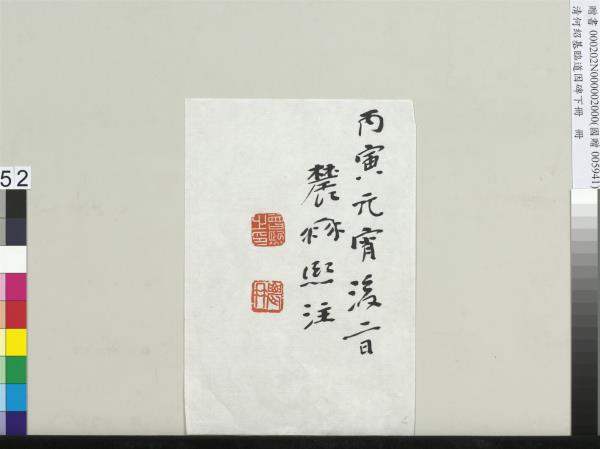 丙寅元宵後二日
農髯熙注
贈書 000202N000002000(國贈 005941)
清何紹基臨道因碑下冊 冊
52